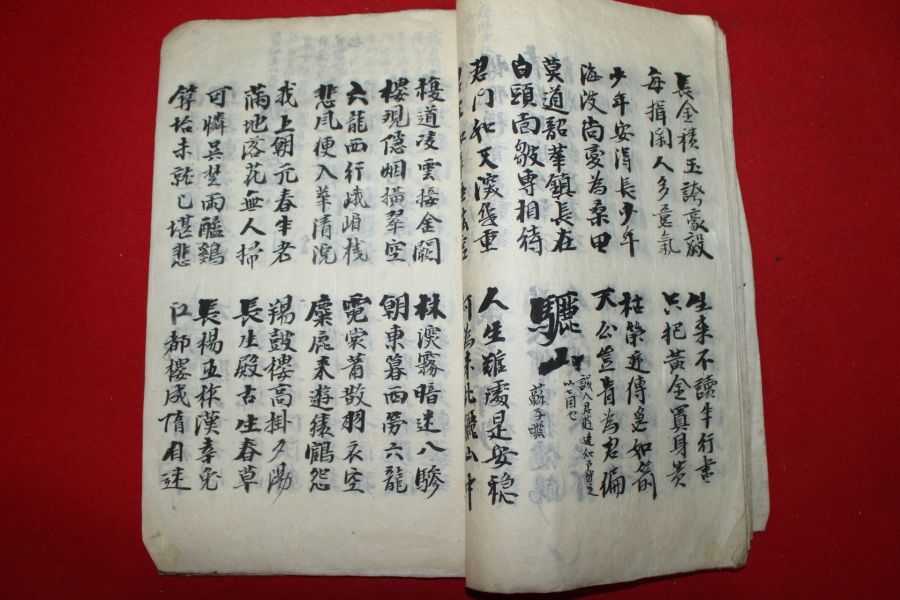 長金積玉誇豪毅
每揖閑人多意氣
生来不讀半行書
只把黃金買身貴
少年安得長少年
海波尚變為桑田
枯榮遞傳急如箭
天公豈肯為君偏
莫道韶華鎮長在
白頭面皺專相待
驪山
蘇子瞻
君門如天深幾重
人生難處是安穩
複道凌雲接金闕
樓現隱烟橫翠空
林深霧暗迷八驂
朝東暮西勞六龍
六龍西行峨嵋棧
悲風便入華清院
霓裳蕭散羽衣空
麋鹿来遊猿鶴怨
我上朝元春半老
滿地落花無人掃
羯鼓樓高掛夕陽
長生殿古生春草
可憐吳楚兩醯鷄
未就已堪悲
長楊五柞漢幸免
江都樓成隋自迷